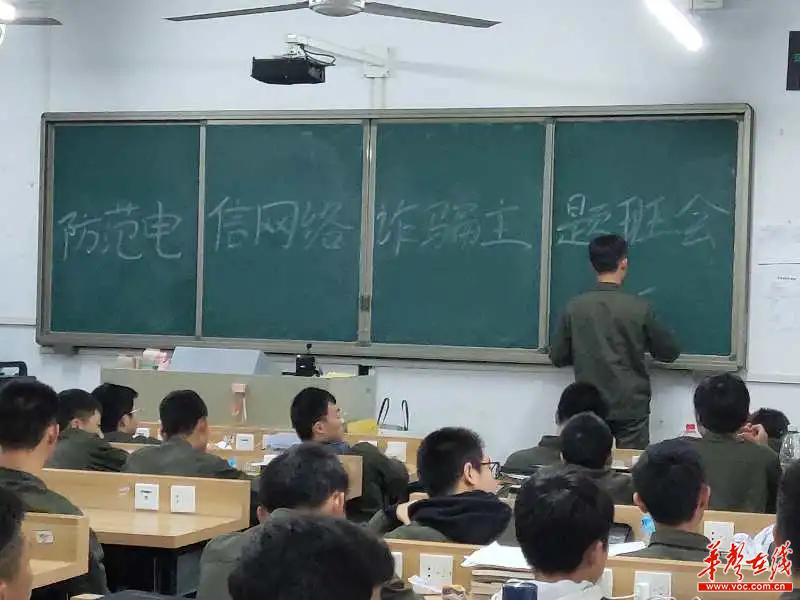 防范电信网络诈骗主题班会
华声在线
www.voc.com.cn